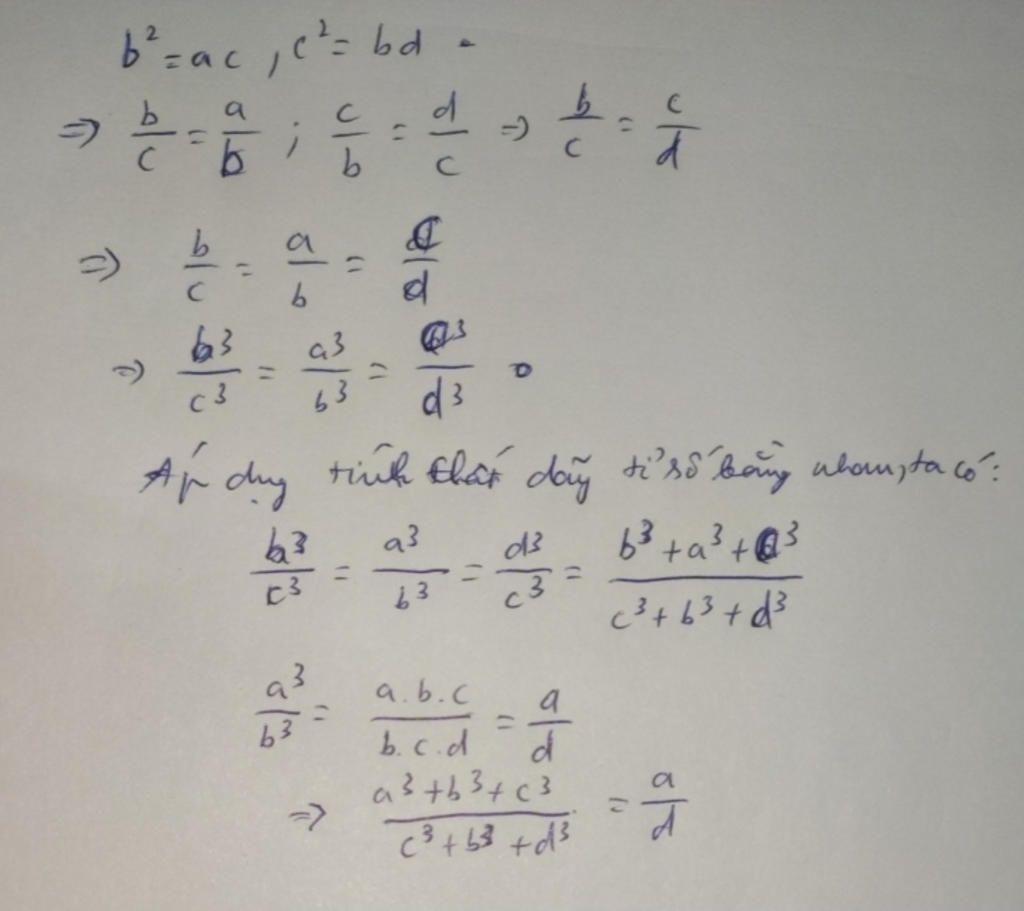 b² = ac , c² = bd .
⇒ b/c = a/b ; c/b = d/c ⇒ b/c = c/d
⇒ b/c = a/b = c/d
⇒ b³/c³ = a³/b³ = c³/d³
Áp dụng tính chất dãy tỉ số bằng nhau, ta có:
b³/c³ = a³/b³ = d³/c³ = (b³ + a³ + c³)/(c³ + b³ + d³)
a³/b³ = (a.b.c)/(b.c.d) = a/d
⇒ (a³ + b³ + c³)/(c³ + b³ + d³) = a/d